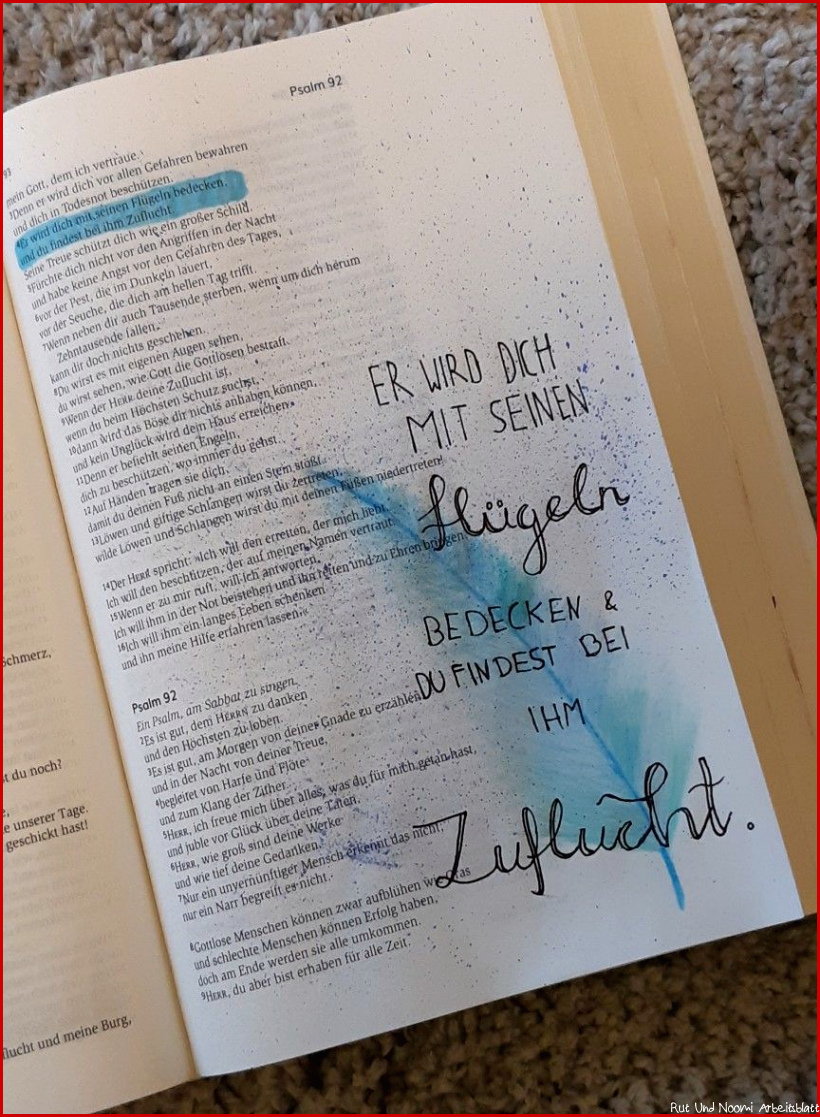 Psalm 92
91
mein Gott, dem ich vertraue.
³Denn er wird dich vor allen Gefahren bewahren
und dich in Todesnot beschützen.
⁴Er wird dich mit seinen Flügeln bedecken,
und du findest bei ihm Zuflucht.
Seine Treue schützt dich wie ein großer Schild.
⁵Fürchte dich nicht vor den Angriffen in der Nacht
und habe keine Angst vor den Gefahren des Tages,
⁶vor der Pest, die im Dunkeln lauert,
vor der Seuche, die dich am hellen Tag trifft.
⁷Wenn neben dir auch Tausende sterben, wenn um dich herum
Zehntausende fallen,
kann dir doch nichts geschehen.
⁸Du wirst es mit eigenen Augen sehen,
du wirst sehen, wie Gott die Gottlosen bestraft.
⁹Wenn der HERR deine Zuflucht ist,
wenn du beim Höchsten Schutz suchst,
¹⁰dann wird das Böse dir nichts anhaben können,
und kein Unglück wird dein Haus erreichen.
¹¹Denn er befiehlt seinen Engeln,
dich zu beschützen, wo immer du gehst.
¹²Auf Händen tragen sie dich,
damit du deinen Fuß nicht an einen Stein stößt.
¹³Löwen und giftige Schlangen wirst du zertreten,
wilde Löwen und Schlangen wirst du mit deinen Füßen niedertreten!
¹⁴Der HERR spricht: »Ich will den erretten, der mich liebt.
Ich will den beschützen, der auf meinen Namen vertraut.
¹⁵Wenn er zu mir ruft, will ich antworten.
Ich will ihm in der Not beistehen und ihn retten und zu Ehren bringen.
¹⁶Ich will ihm ein langes Leben schenken
und ihn meine Hilfe erfahren lassen.«
Psalm 92
Ein Psalm, am Sabbat zu singen.
²Es ist gut, dem HERRN zu danken
und den Höchsten zu loben.
³Es ist gut, am Morgen von deiner Gnade zu erzählen
und in der Nacht von deiner Treue,
⁴begleitet von Harfe und Flöte
und zum Klang der Zither.
⁵HERR, ich freue mich über alles, was du für mich getan hast,
und juble vor Glück über deine Taten.
⁶HERR, wie groß sind deine Werke
und wie tief deine Gedanken.
⁷Nur ein unvernünftiger Mensch erkennt das nicht,
nur ein Narr begreift es nicht.
⁸Gottlose Menschen können zwar aufblühen wie
und schlechte Menschen können Erfolg haben,
doch am Ende werden sie alle umkommen.
⁹HERR, du aber bist erhaben für alle Zeit.
ER WIRD DICH
MIT SEINEN
flügeln
BEDECKEN &
DU FINDEST BEI
IHM
Zuflucht.
Schmerz,
t du noch?
e unserer Tage.
geschickt hast!
flucht und meine Burg,
Rut Und Noomi Arbeitsblatt